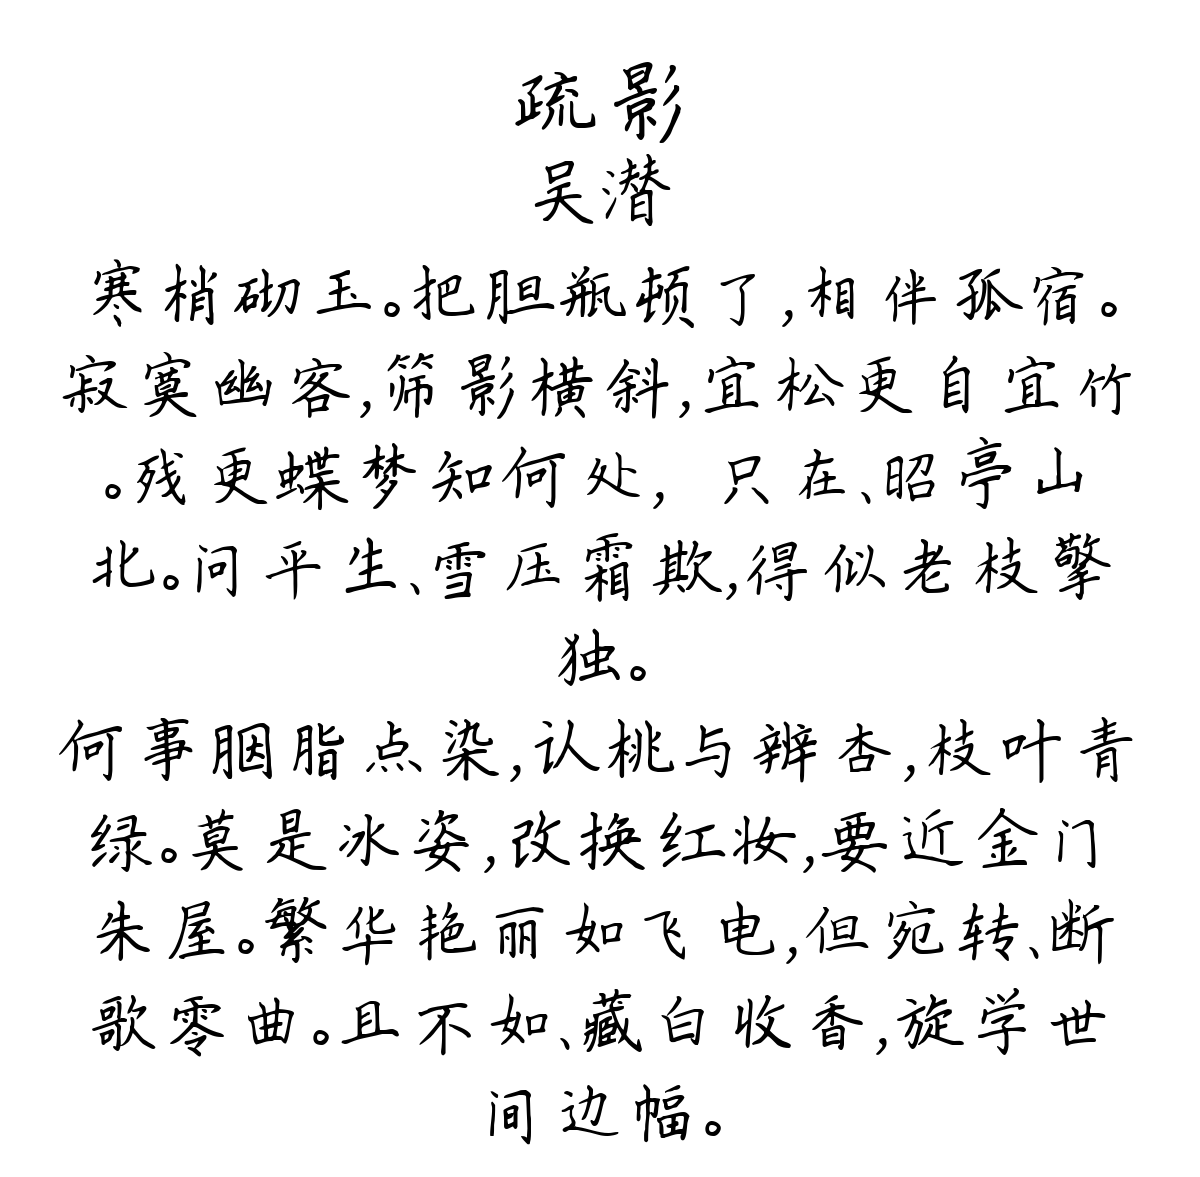 疏影
吴潜
寒梢砌玉。把胆瓶顿了,相伴孤宿。
寂寞幽客,筛影横斜,宜松更自宜竹
。残更蝶梦知何处,只在、昭亭山
北。问平生、雪压霜欺,得似老枝擎
独。
何事胭脂点染,认桃与辨杏,枝叶青
绿。莫是冰姿,改换红妆,要近金门
朱屋。繁华艳丽如飞电,但宛转、断
歌零曲。且不如、藏白收香,旋学世
间边幅。